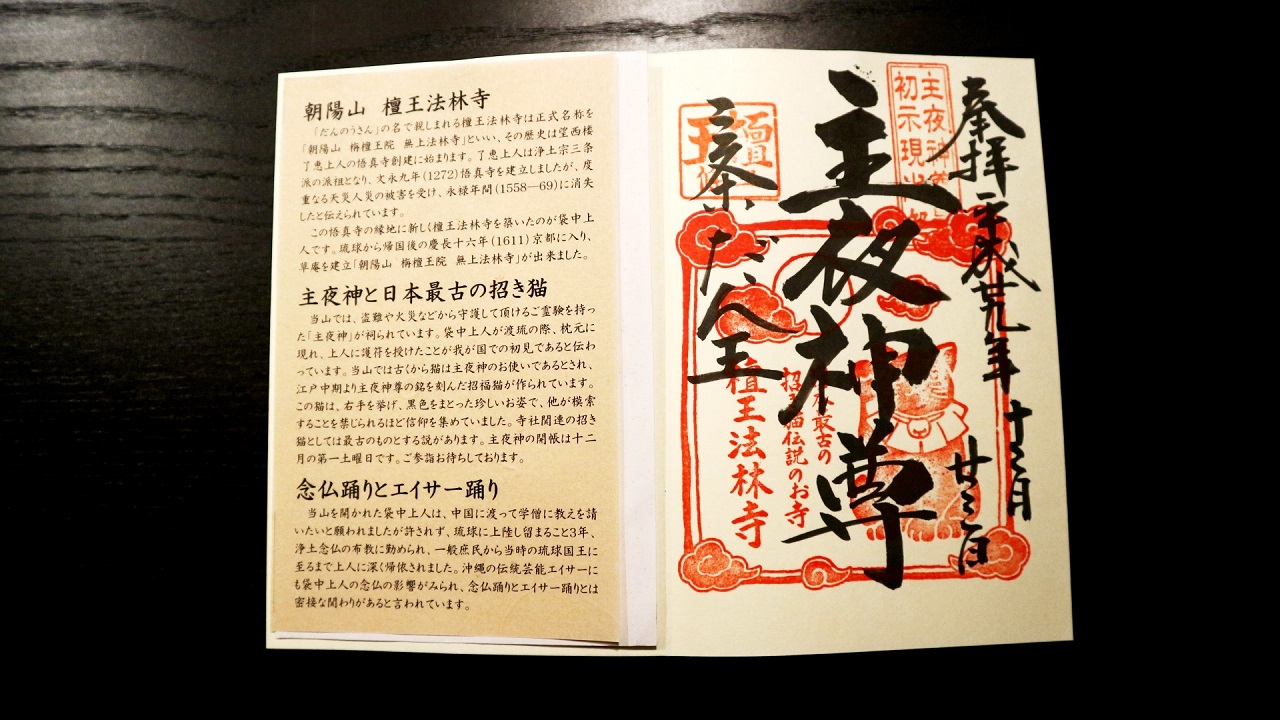 朝陽山 檀王法林寺
「だんのうさん」の名で親しまれる檀王法林寺は正式名称を
「朝陽山 栴檀王院 無上法林寺」といい、その歴史は望西楼
了恵上人の悟真寺創建に始まります。了恵上人は浄土宗三条
派の派祖となり、文永九年(1272)悟真寺を建立しましたが、度
重なる天災人災の被害を受け、永禄年間(1558―69)に消失
したと伝えられています。
この悟真寺の縁地に新しく檀王法林寺を築いたのが袋中上
人です。琉球から帰国後の慶長十六年(1611)京都に入り、
草庵を建立「朝陽山 栴檀王院 無上法林寺」が出来ました。
主夜神と日本最古の招き猫
当山では、盗難や火災などから守護して頂けるご霊験を持っ
た「主夜神」が祠られています。袋中上人が渡琉の際、枕元に
現れ、上人に護符を授けたことが我が国での初見であると伝わ
っています。当山では古くから猫は主夜神のお使いであるとされ、
江戸中期より主夜神尊の銘を刻んだ招福猫が作られています。
この猫は、右手を挙げ、黒色をまとった珍しいお姿で、他が模索
することを禁じられるほど信仰を集めていました。寺社関連の招き
猫としては最古のものとする説があります。主夜神の開帳は十二
月の第一土曜日です。ご参詣お待ちしております。
念仏踊りとエイサー踊り
当山を開かれた袋中上人は、中国に渡って学僧に教えを請
いたいと願われましたが許されず、琉球に上陸し留まること3年、
浄土念仏の布教に勤められ、一般庶民から当時の琉球国王に
至るまで上人に深く帰依されました。沖縄の伝統芸能エイサーに
も袋中上人の念仏の影響がみられ、念仏踊りとエイサー踊りとは
密接な関わりがあると言われています。
奉拝 平成廿九年 十二月 廿三日
主夜神尊
初示現
主夜神尊
最古の
招き猫伝説のお寺
檀王法林寺
三条 だん王